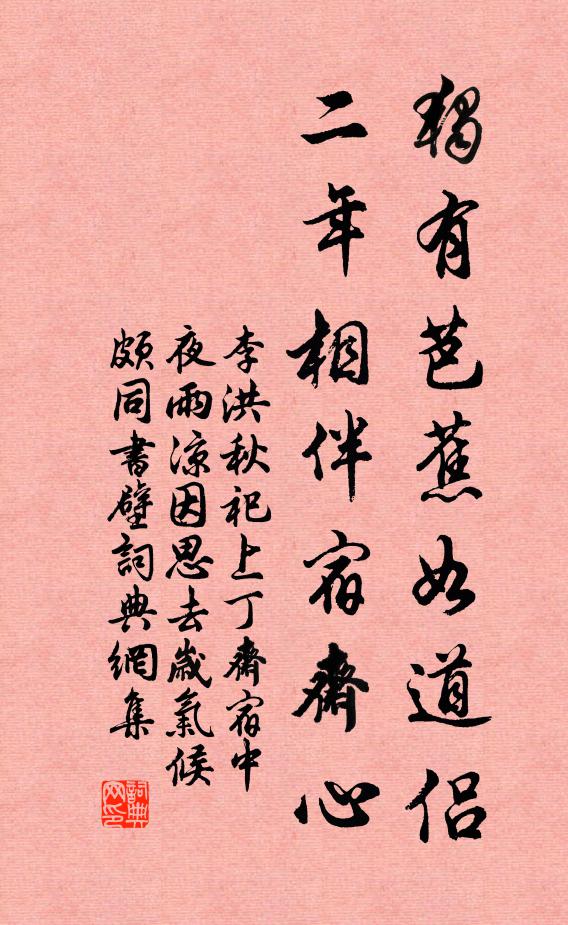 獨有芭蕉如道侶
二年相伴宿齋心
李洪秋祀上丁齋宿中
夜雨凉因思去歲氣候
頗同書壁詞典網集
詞典
网印